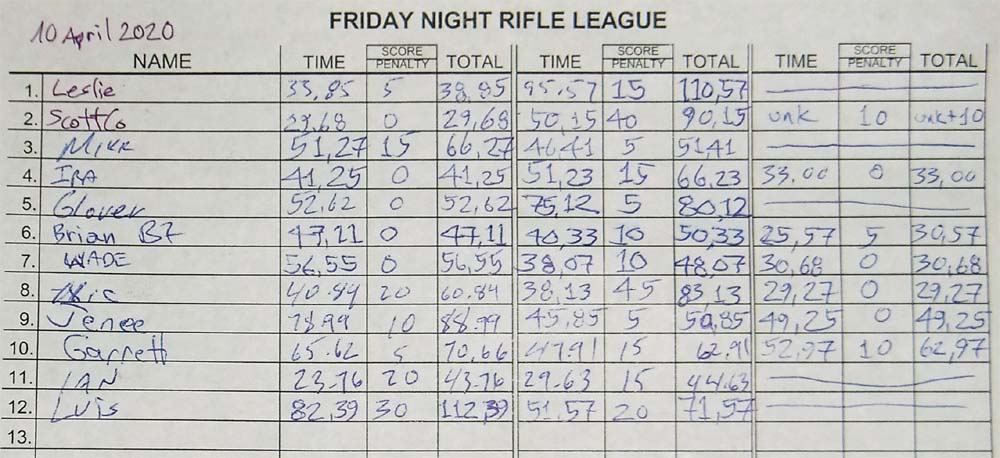 FRIDAY NIGHT RIFLE LEAGUE
10 April 2020
NAME TIME SCORE PENALTY TOTAL TIME SCORE PENALTY TOTAL TIME SCORE PENALTY TOTAL
1. Leslie 33,85 5 38,85 95,57 15 110,57
2. ScottCo 29,68 0 29,68 50,15 40 90,15 unk 10 unk+10
3. Mike 51,27 15 66,27 46,41 5 51,41
4. IRA 41,25 0 41,25 51,23 15 66,23 33.00 0 33,00
5. Glover 52,62 0 52,62 75,12 5 80,12
6. Brian BZ 47,11 0 47,11 40,33 10 50,33 25,57 5 30,57
7. WADE 56,55 0 56,55 38,07 10 48,07 30,68 0 30,68
8. 40.84 20 60.84 38,13 45 83,13 29,27 0 29,27
9. Jenee 78.99 10 88.99 45,85 5 50,85 49,25 0 49,25
10. Garrett 65.62 5 70,66 47.91 15 62,91 52,97 10 62,97
11. IAN 23.76 20 43.76 29.63 15 44.63
12. Luis 82,39 30 112,39 51,57 20 71,57
13.